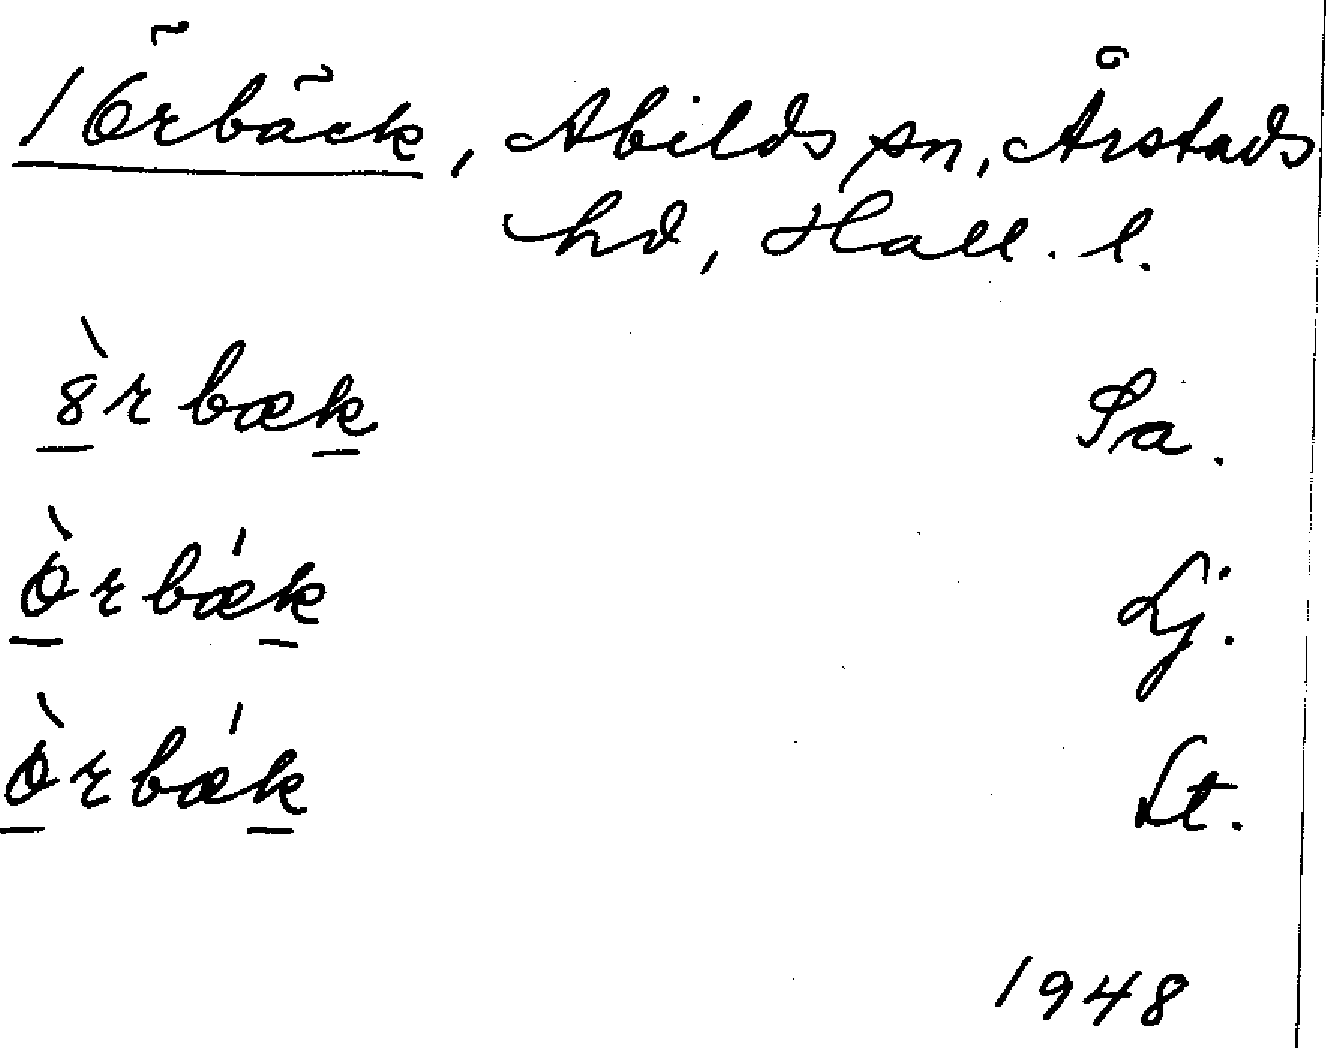 1 Örbäck, Abilds sn, Årstads
hd, Hall. l.
8̀rbæk Sa.
Òrbǽk Lj.
Òrbǽk Lt.
1948